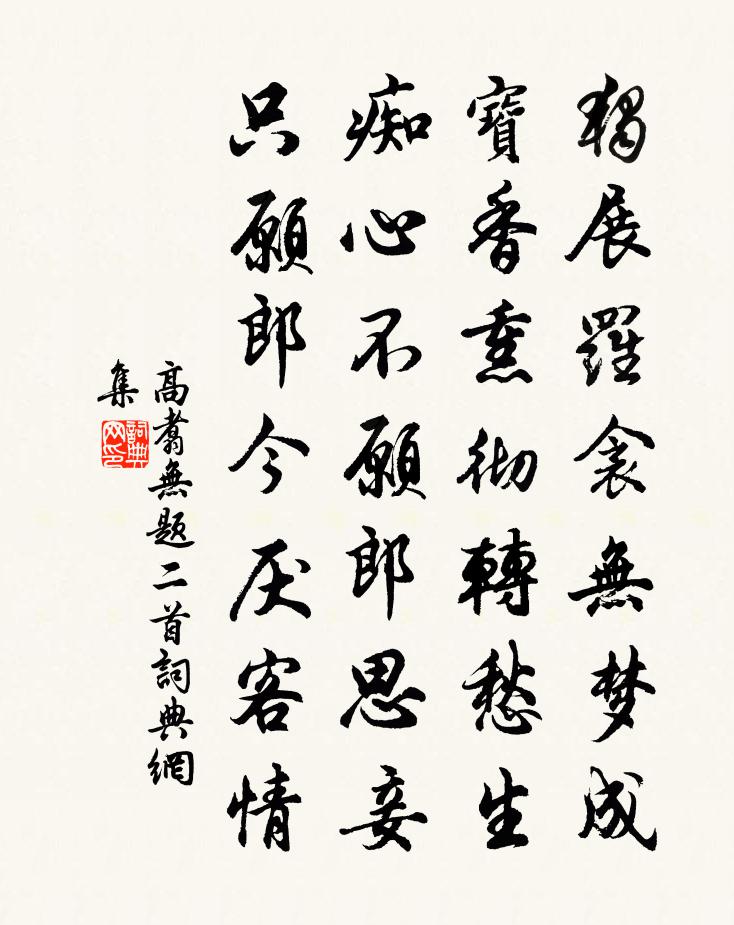 獨展羅衾無梦成
寶香熏彻轉愁生
痴心不願郎思妾
只願郎今厌客情
高翥無題二首詞典網
集
詞典
网印